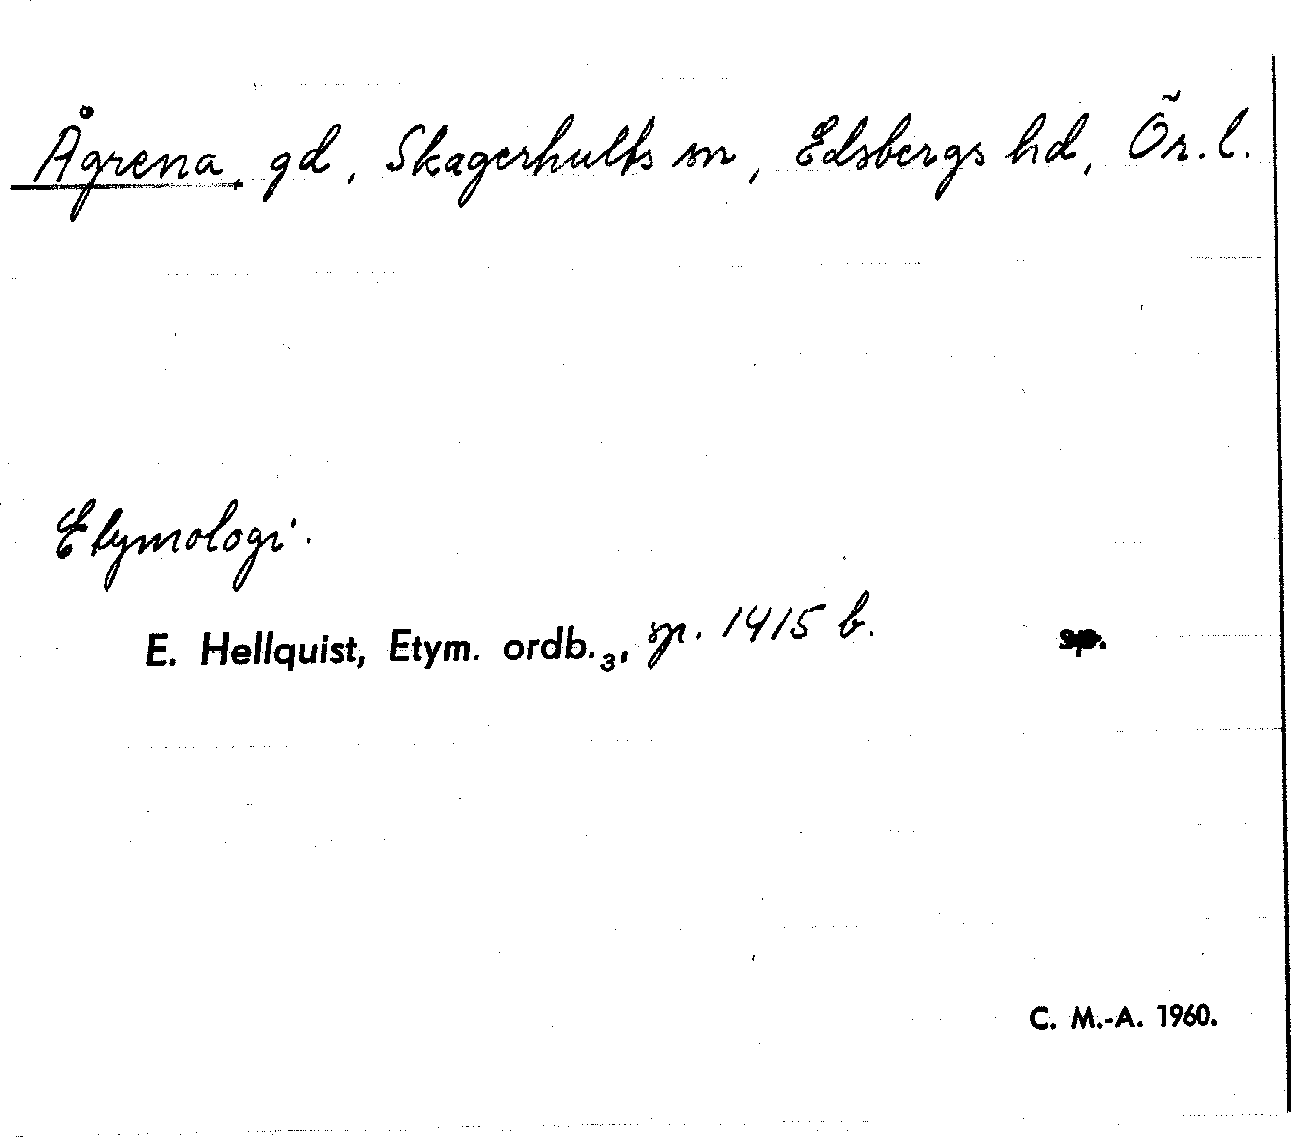 Ågrena, gd, Skagerhults sn, Edsbergs hd, Ör. l.
Etymologi.
E. Hellquist, Etym. ordb.₃, sp. 1415 b. sp.
C. M.-A. 1960.